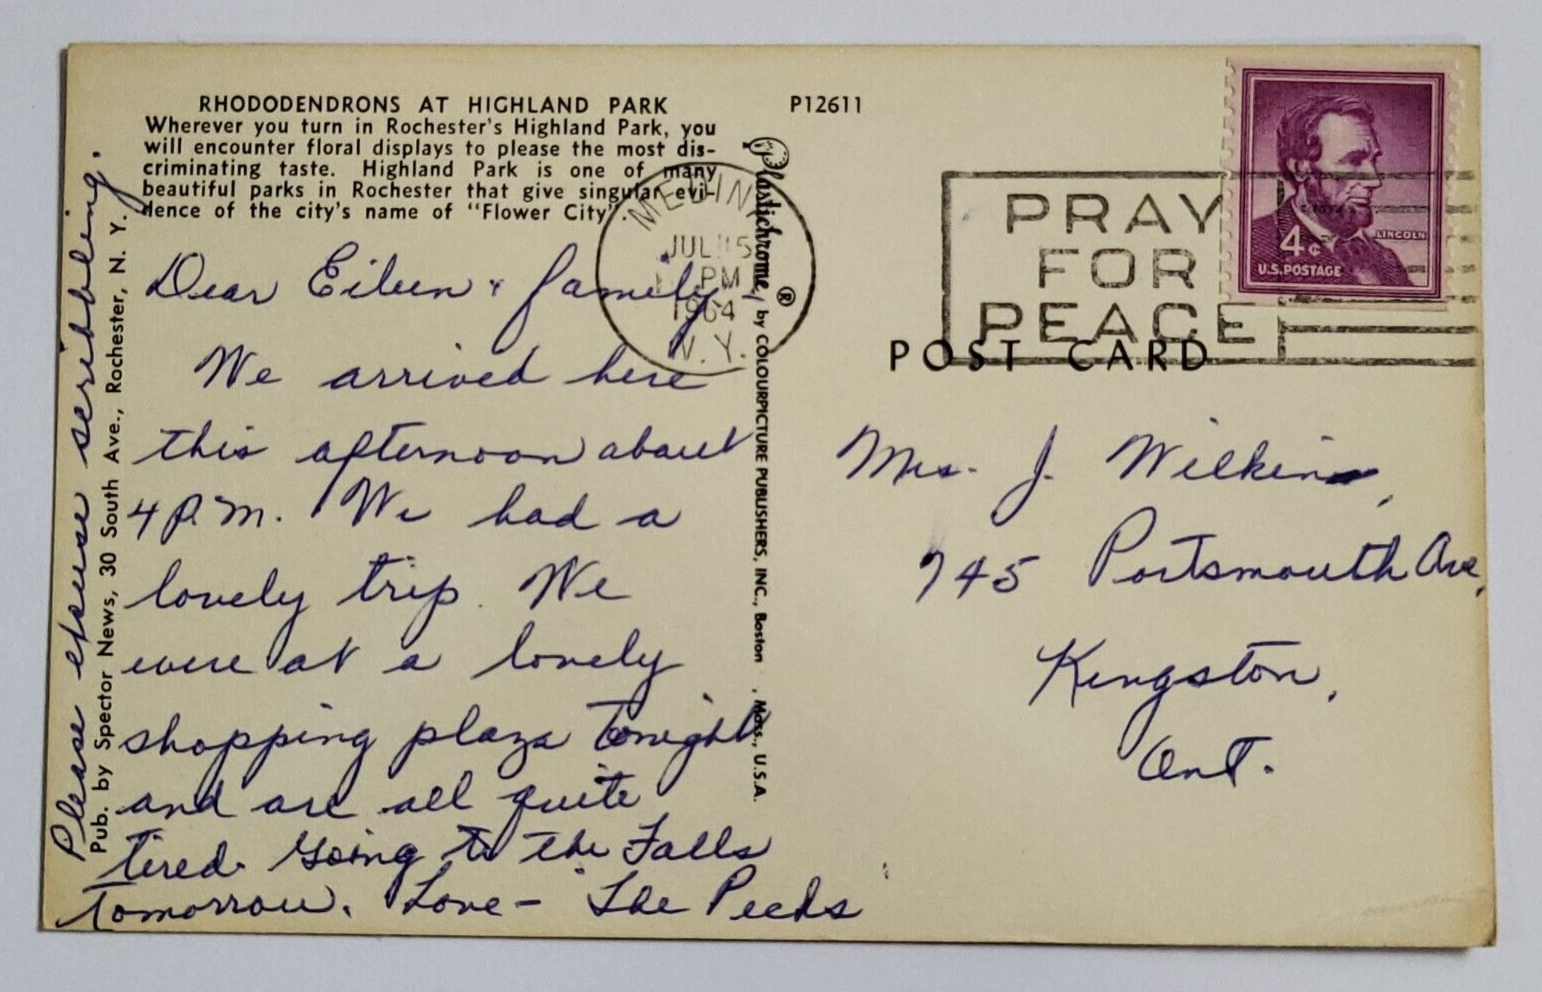 RHODODENDRONS AT HIGHLAND PARK
Wherever you turn in Rochester's Highland Park, you
will encounter floral displays to please the most dis-
criminating taste. Highland Park is one of many
beautiful parks in Rochester that give singular evi-
dence of the city's name of "Flower City".
P12611
Dear Eileen & family
We arrived here
this afternoon about
4 P.M. We had a
lovely trip. We
were at a lovely
shopping plaza tonight
and are all quite
tired. Going to the Falls
tomorrow. Love - The Pecks
Please excuse scribbling.
Pub. by Spector News, 30 South Ave., Rochester, N. Y.
Plastichrome ® by COLOURPICTURE PUBLISHERS, INC., Boston , Mass., U.S.A.
JUL 15
PM
1964
N.Y.
PRAY
FOR
PEACE
LINCOLN
4¢
U.S. POSTAGE
POST CARD
Mrs. J. Wilkins,
745 Portsmouth Ave,
Kingston,
Ont.